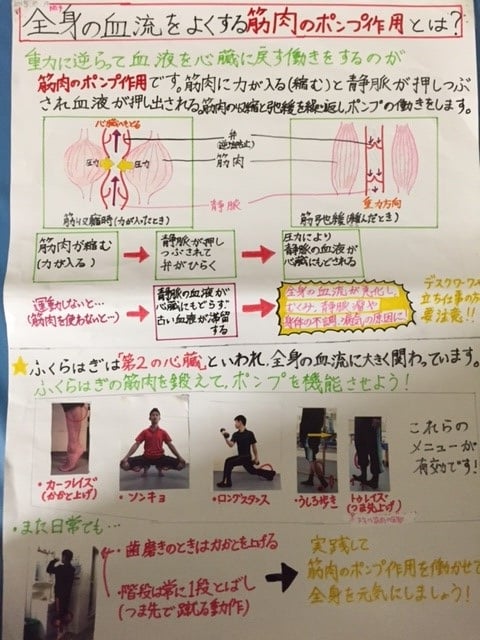 全身の血流をよくする筋肉のポンプ作用とは?
重力に逆らって血液を心臓に戻す働きをするのが
筋肉のポンプ作用です。筋肉に力が入る(縮む)と静脈が押しつぶ
され血液が押し出される。筋肉の収縮と弛緩を繰り返しポンプの働きをします。
心臓へもどる
圧力
圧力
弁
(逆流防止)
筋肉
静脈
重力方向
筋収縮時(力が入ったとき)
筋弛緩(緩んだとき)
筋肉が縮む
(力が入る)
静脈が押し
つぶされて
弁がひらく
圧力により
静脈の血液が
心臓にもどされる
運動しないと…
(筋肉を使わないと…)
静脈の血液が
心臓にもどらず
古い血液が滞留
する
全身の血流が悪化し、
むくみ、静脈瘤や
身体の不調、病気の原因に!
デスクワークや
立ち仕事の方
要注意!!
ふくらはぎは「第2の心臓」といわれ、全身の血流に大きく関わっています。
ふくらはぎの筋肉を鍛えて、ポンプを機能させよう!
・カーフレイズ
(かかと上げ)
・ソンキョ
・ロングスタンス
・うしろ歩き
トゥレイズ
(つま先上げ)
これらの
メニューが
有効です!
・また日常でも…
・歯磨きのときはかかとを上げる
・階段は常に1段とばし
(つま先で蹴る動作)
実践して
筋肉のポンプ作用を働かせて
全身を元気にしましょう!